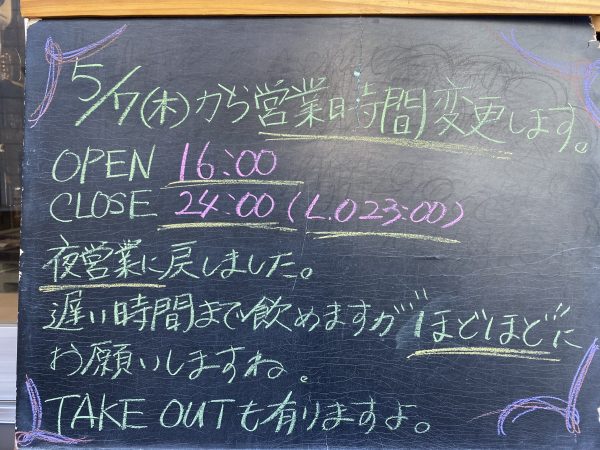 5/7(木)から営業時間変更します。
OPEN 16:00
CLOSE 24:00 (L.O 23:00)
夜営業に戻しました。
遅い時間まで飲めますが"ほどほど"に
お願いしますね。
TAKE OUTも有りますよ。